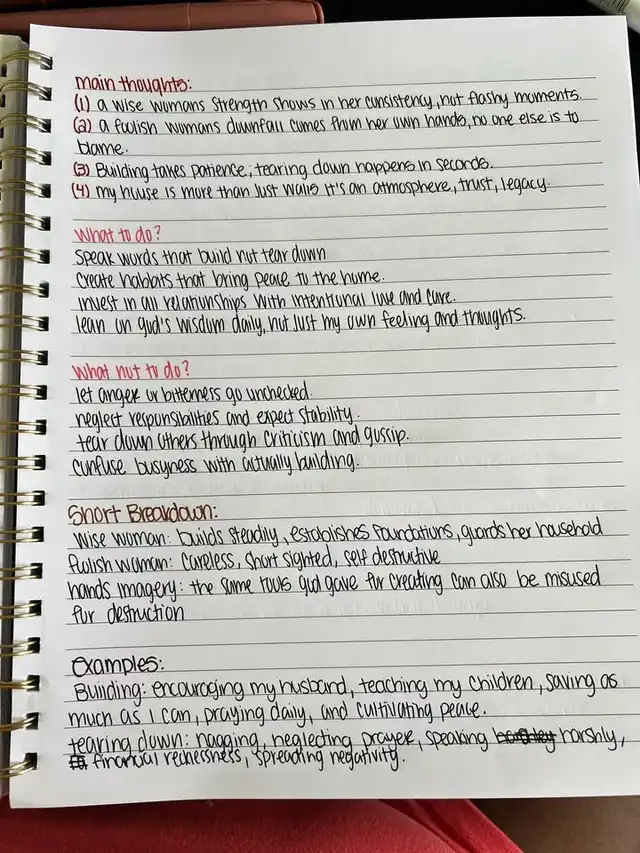 main thoughts:
(1) a wise womans strength shows in her consistency, not flashy moments.
(2) a foolish womans downfall comes from her own hands, no one else is to
blame.
(3) Building takes patience, tearing down happens in seconds.
(4) my house is more than just walls it's an atmosphere, trust, legacy.
What to do?
Speak words that build not tear down
Create habbits that bring peace to the home.
invest in all relationships with intentional love and care.
lean on god's wisdom daily, not just my own feeling and thoughts.
What not to do?
let anger or bitterness go unchecked.
neglect responsibilities and expect stability.
tear down others through criticism and gossip.
confuse busyness with actually building.
Short Breakdown:
Wise woman: builds steadily, establishes foundations, guards her household
foolish woman: careless, short sighted, self destructive
hands imagery: the same tools god gave for creating can also be misused
for destruction
Examples:
Building: encouraging my husband, teaching my children, saving as
much as I can, praying daily, and cultivating peace.
tearing down: nagging, neglecting prayer, speaking harshly,
financial recknessness, spreading negativity.